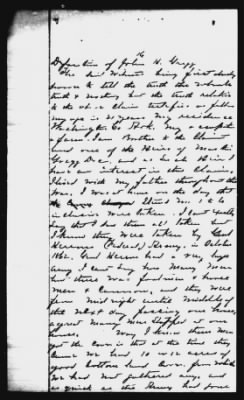 16
Deposition of John H. Gregg
The said Witness being first duly
sworn to tell the truth the whole
truth & nothing but the truth relative
to the above Claim testifies as follows
my age is 20 years My residence
Washington Co Ark. My occupation
farmer I am Brother to the Claimant
and one of the Heirs of
Gregg Dec. and as such Heir I
have an interest in this Claim
I lived with my father throughout the
war. I was at home on the day that
Items No. 1 to 6
inclusive were taken. I
saw that I saw them all taken but
I know they were taken by Genl
Herrons (Federal) Army, in October
1862. Genl Herron had a very large
army I cant say how many men
but there was Infantry & horse
men & Cannon, and they were
from mid night until middle of
the next day passing our house,
a great many men stopped at our
house. I know there was
the corn is that at the time they
came we had 10 or 12 acres of
good bottom land corn from which
we had not gathered any and
as quick as the Army had gone